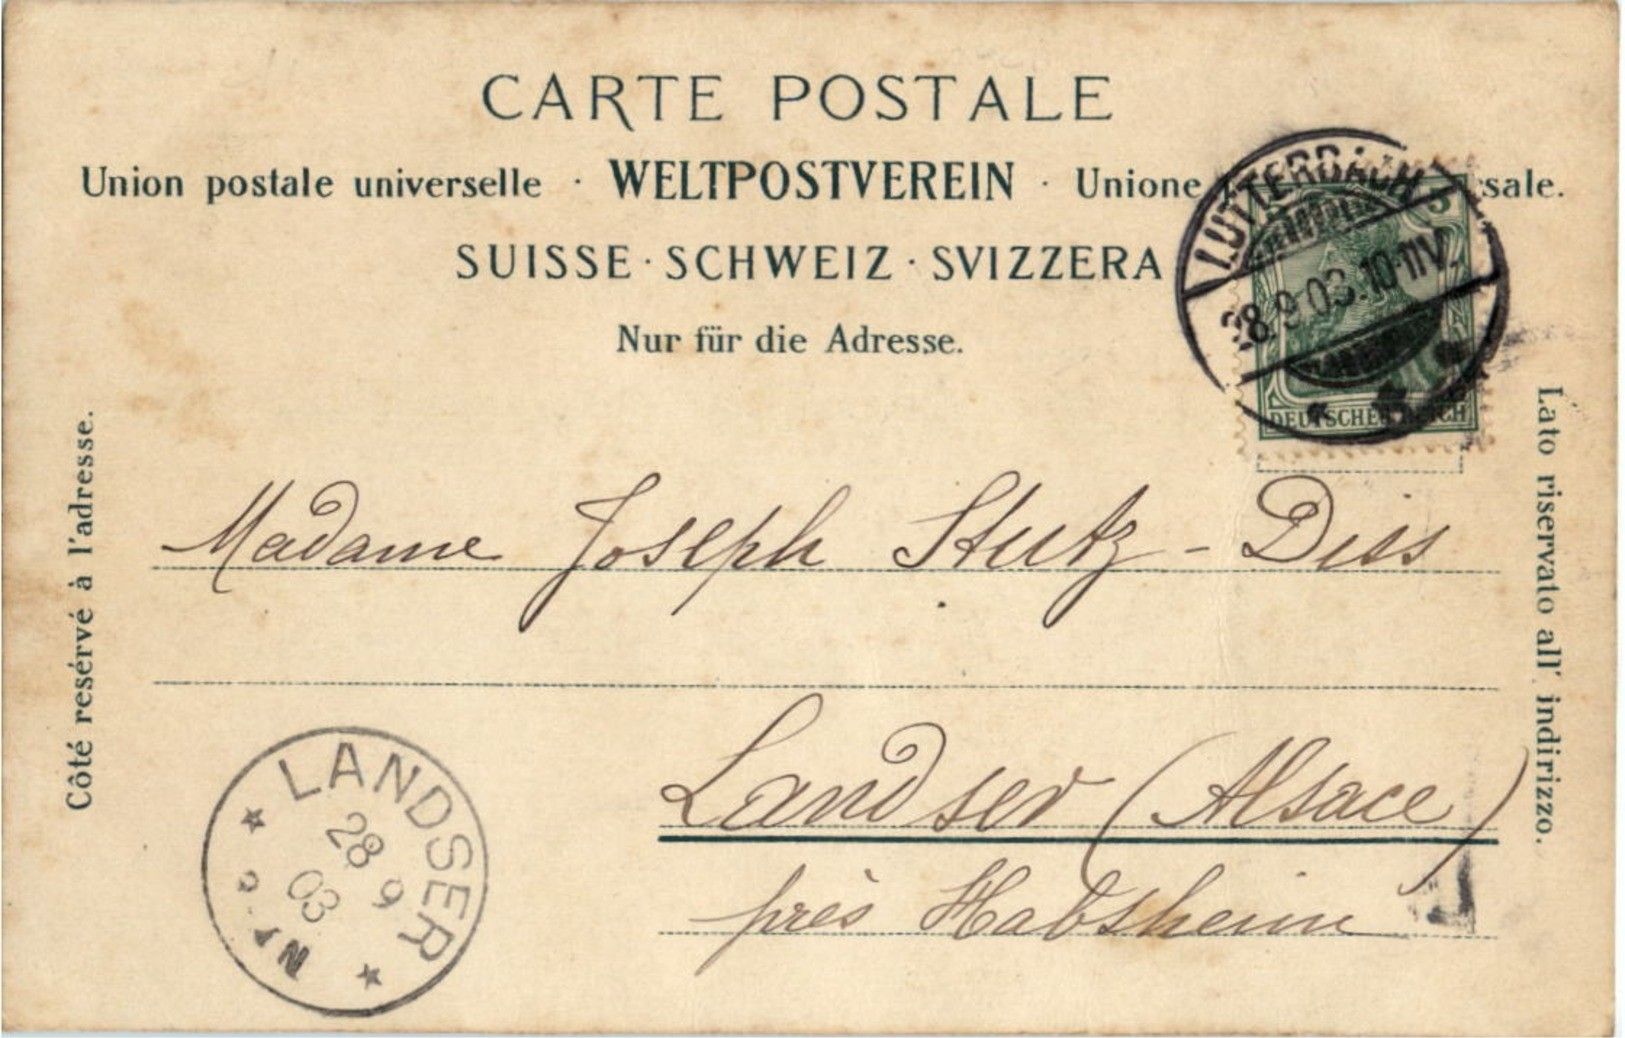 CARTE POSTALE
Union postale universelle · WELTPOSTVEREIN · Unione sale.
SUISSE · SCHWEIZ · SVIZZERA
Nur für die Adresse.
LUTTERBACH
28.9.03.10-11V.
5
DEUTSCHES REICH
Côté resérvé à l'adresse.
Lato riservato all' indirizzo.
Madame Joseph Stutz - Diss
Landser (Alsace)
près Habsheim
LANDSER
28 9
03
N